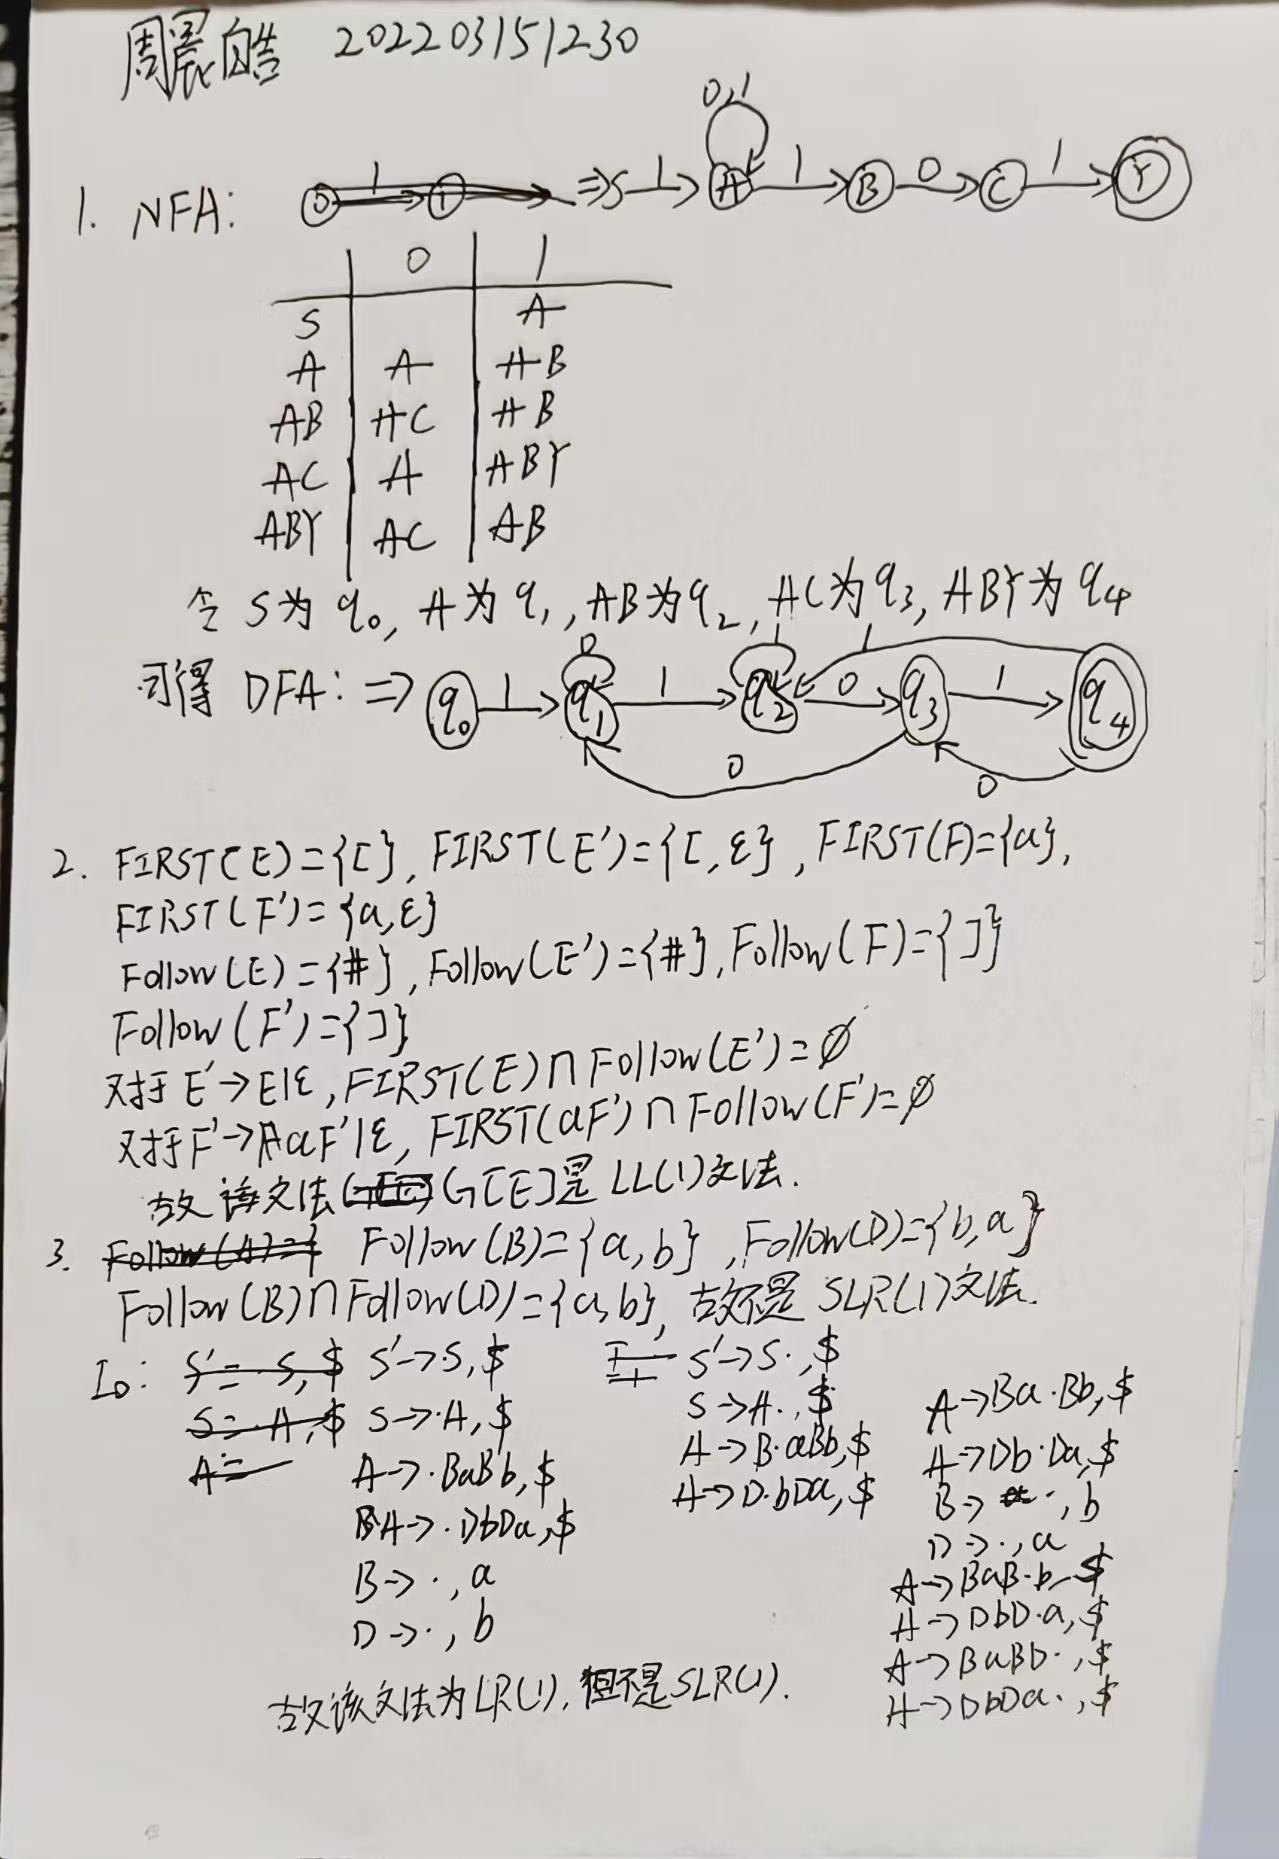 周晨皓 202203151230
1. NFA: ⇒S 1 A 0,1 1 B 0 C 1 Y
0 1
S A
A A AB
AB AC AB
AC A ABY
ABY AC AB
令 S为 q₀, A为 q₁, AB为q₂, AC为q₃, ABY为 q₄
可得 DFA: ⇒ q₀ 1 q₁ 0 1 q₂ 1 0 q₃ 1 q₄ 1 0 0
2. FIRST(E)={[}, FIRST(E')={[, ε}, FIRST(F)={a},
FIRST(F')={a,ε}
Follow(E)={#}, Follow(E')={#}, Follow(F)={]}
Follow(F')={]}
对于 E'→E|ε, FIRST(E)∩Follow(E')=∅
对于F'→aF'|ε, FIRST(aF')∩Follow(F')=∅
故该文法 G[E]是 LL(1)文法.
3. Follow(B)={a,b}, Follow(D)={b,a}
Follow(B)∩Follow(D)={a,b}, 故不是 SLR(1)文法.
I₀: S'→·S,$
S→·A,$
A→·BaBb,$
A→·DbDa,$
B→·,a
D→·,b
S'→S·,$
S→A·,$
A→B·aBb,$
A→D·bDa,$
A→Ba·Bb,$
A→Db·Da,$
B→·,b
D→·,a
A→BaB·b,$
A→DbD·a,$
A→BaBb·,$
A→DbDa·,$
故该文法为LR(1), 但不是SLR(1).